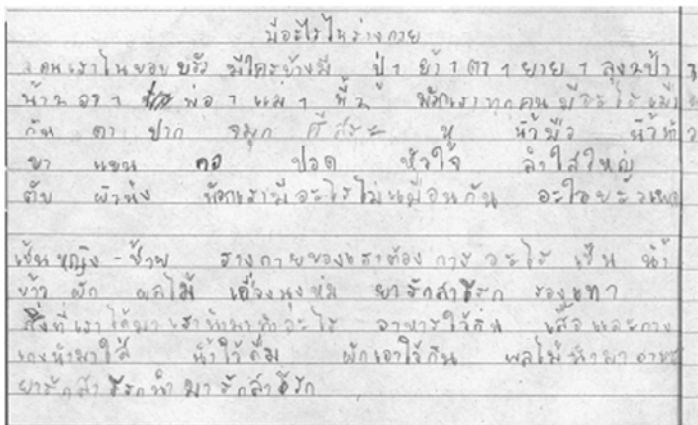 มีอะไรในร่างกาย
คนเราในขอบขรัว มีใครบ้างมี ปู่ 1 ย่า 1 ตา 1 ยาย 1 ลุง 2 ป้า
น้า 2 อา 1 พ่อ 1 แม่ 1 พี่ 2 พวกเราทุกคนมีอะไรเหมือ
กัน ตา ปาก จมูก ศีสระ หู นิ้วมือ นิ้วเท้า
ขา แขน คอ ปอด หัวใจ ลำใส้ใหญ่
ตับ ผิวนัง พวกเรามีอะไรไม่เหมือนกัน
เช้นหญิง - ช้าย รางกายของเราต้องการอะไร เช็น น้ำ
ข้าว ผัก ผลไม้ เครื่องนุงห่ม ยารักสาธีรก รองเทา
สิ่งที่เราได้มาเรานำมาทำอะไร อาหารใว้กิน เสื้อและกาง
เกงนำมาใส่ น้ำใว้ดื่ม ผักเอาใว้กิน ผลไม้นำมา
ยารักสาธีรกนำมารักสาธีรัก